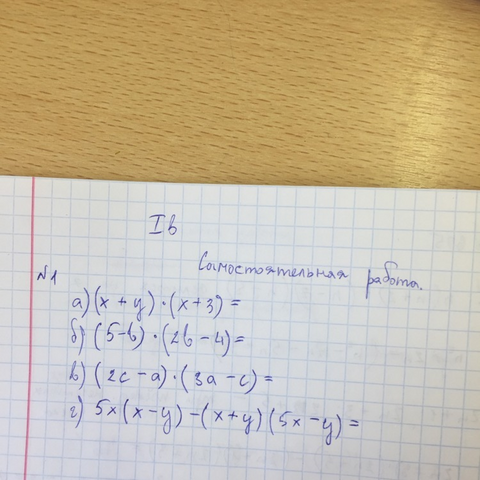 Iв
Самостоятельная работа.
№1
а) (x + y) · (x + 3) =
б) (5 - b) · (2b - 4) =
в) (2c - a) · (3a - c) =
г) 5x(x - y) - (x + y)(5x - y) =